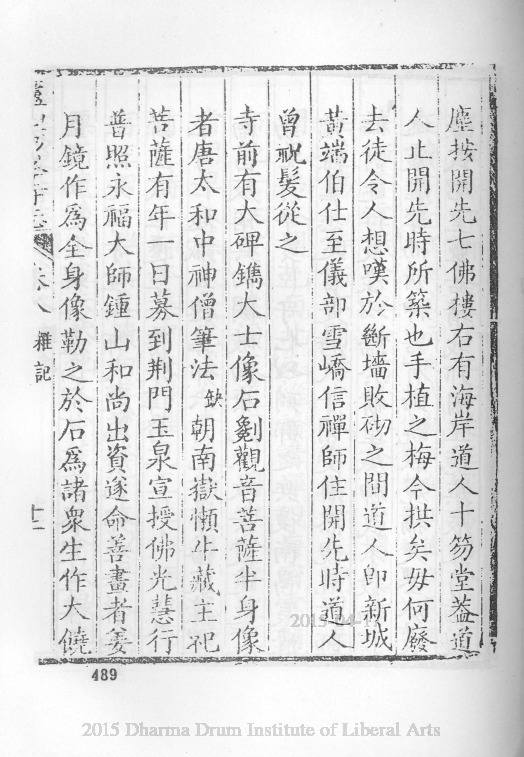 塵按開先七佛樓右有海岸道人十笏堂葢道
人止開先時所築也手植之梅今拱矣毋何廢
去徒令人想嘆於斷墻敗砌之間道人卽新城
黃端伯仕至儀部雪嶠信禪師住開先時道人
曾祝髮從之
寺前有大碑鐫大士像石劖觀音菩薩半身像
者唐太和中神僧筆法缺朝南嶽懶牛藏主祀
菩薩有年一日募到荆門玉泉宣授佛光慧行
普照永福大師鍾山和尚出資遂命善畫者姜
月鏡作爲全身像勒之於石爲諸衆生作大饒
卷八 雜記 十二
489
2015-04-1
2015 Dharma Drum Institute of Liberal Arts